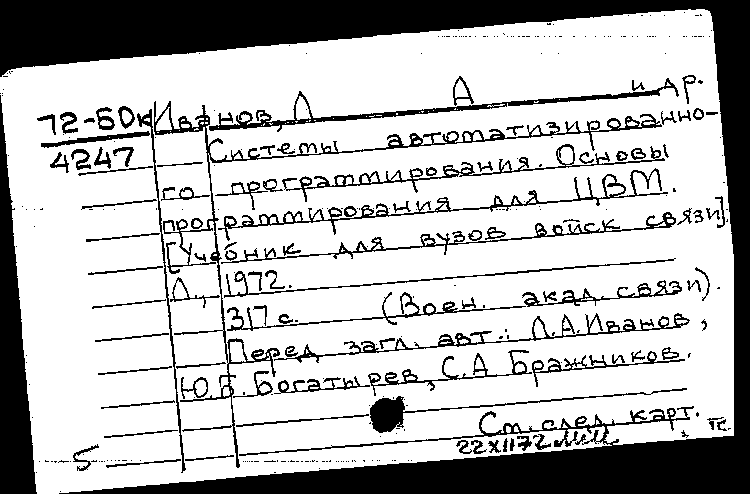 72-50к Иванов, Л А и др.
4247 Системы автоматизированно-
го программирования. Основы
программирования для ЦВМ.
[Учебник для вузов войск связи]
Л., 1972.
317 с. (Воен. акад. связи).
Перед загл. авт.: Л.А.Иванов,
Ю.Б.Богатырев, С.А Бражников.
См. след. карт.
5 22XII72